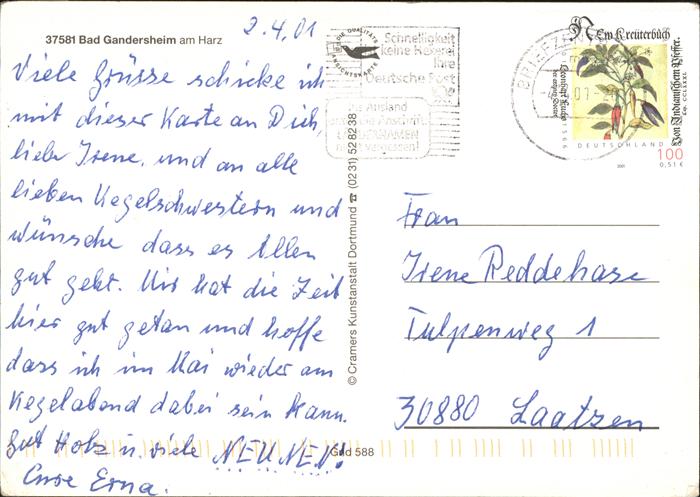 2.4.01
37581 Bad Gandersheim am Harz
Viele Grüsse schicke ich
mit dieser Karte an Dich,
liebe Irene, und an alle
lieben Kegelschwestern und
wünsche dass es Allen
gut geht. Mir hat die Zeit
hier gut getan und hoffe
dass ich im Mai wieder am
Kegelabend dabei sein kann.
Gut Holz u. viele NEUNEN!
Eure Erna.
© Cramers Kunstanstalt Dortmund ☎ (0231) 528238
Gnd 588
DIE QUALITÄTS
ANSICHTSKARTE
Schnelligkeit
keine Hexerei
Ihre
Deutsche Post
Ins Ausland
nicht vergessen!
BRIEFZENTRUM
New Kreüterbuch
Von Indianischem Pfeffer.
DEUTSCHLAND
2001
100
0,51 €
Frau
Irene Reddehase
Tulpenweg 1
30880 Laatzen